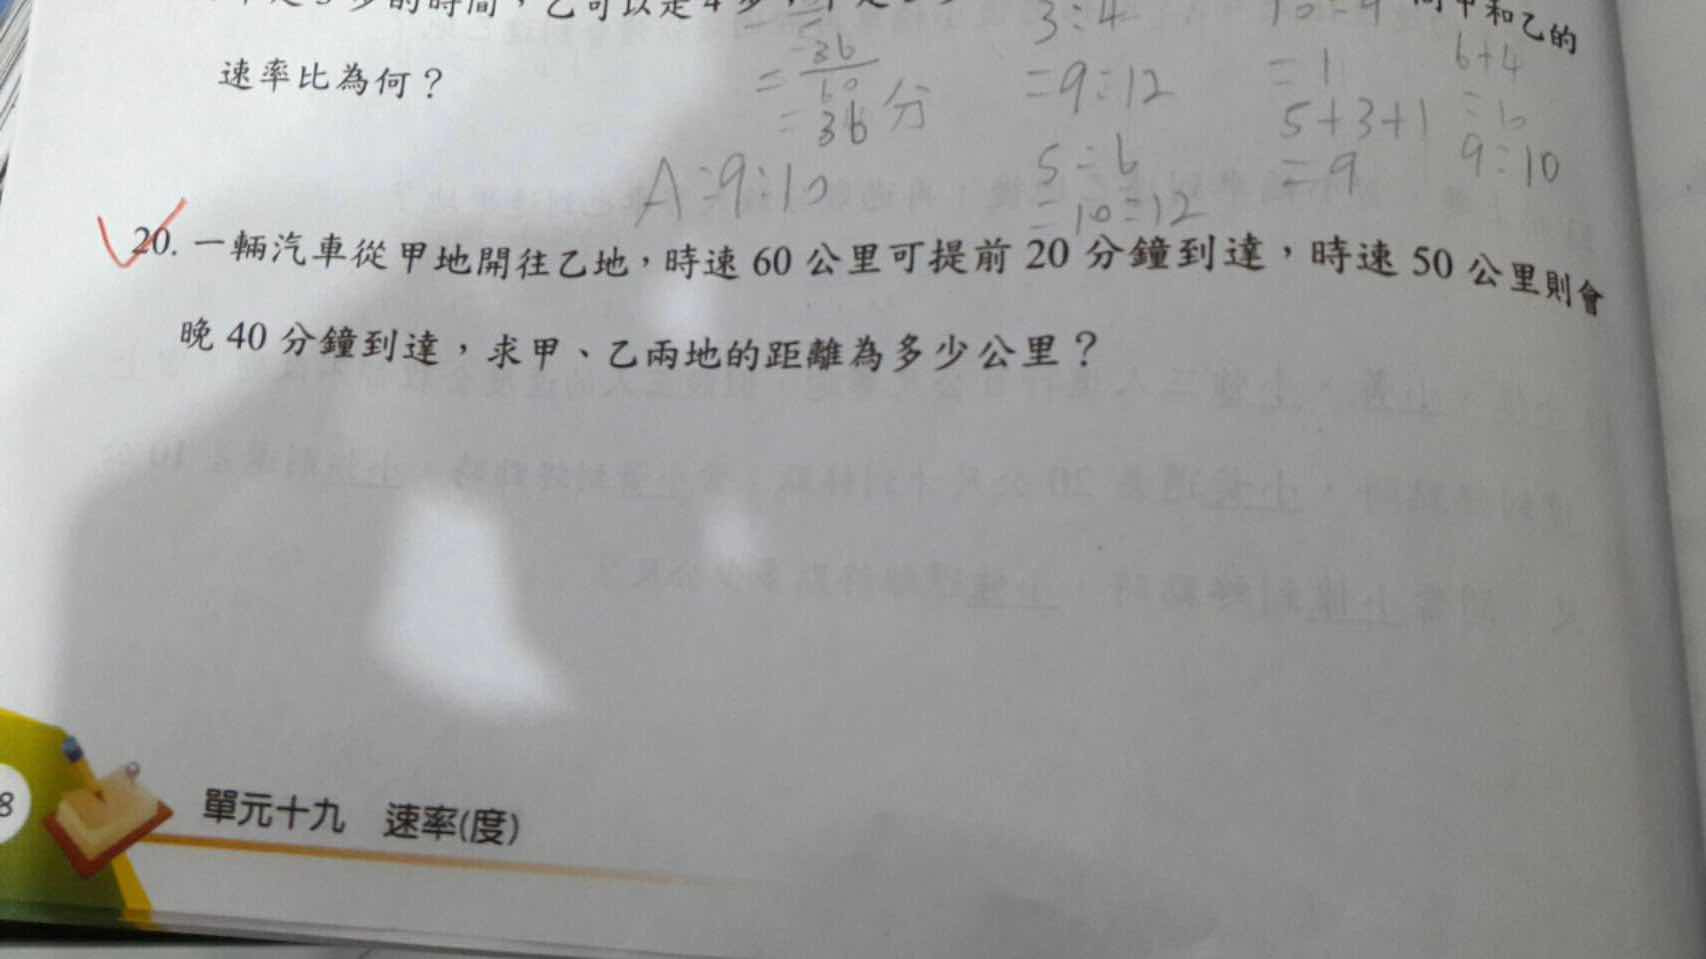 的時間，乙可以走4步，
甲和乙的
速率比為何？
= 36/60
= 36分
3:4
= 9:12
5:6
= 10:12
= 1
5+3+1
= 9
6+4
9:10
A:9:10
20. 一輛汽車從甲地開往乙地，時速 60 公里可提前 20 分鐘到達，時速 50 公里則會
晚 40 分鐘到達，求甲、乙兩地的距離為多少公里？
8
單元十九 速率(度)